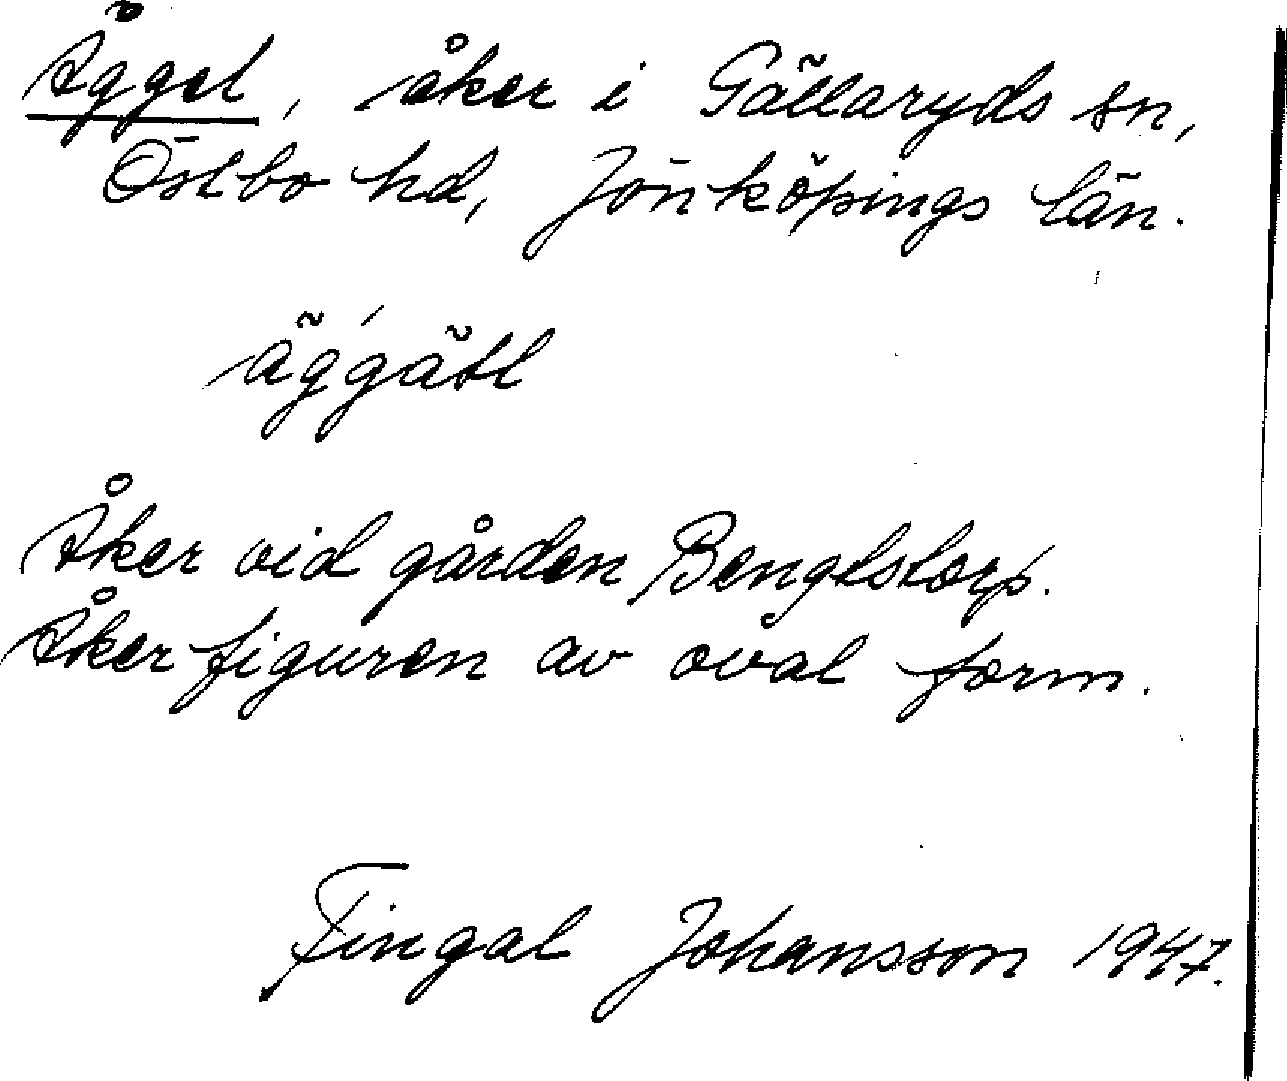 Ägget, åker i Gällaryds sn,
Östbo hd, Jönköpings län.
äg´gätt
Åker vid gården Bengtstorp.
Åkerfiguren av oval form.
Fingal Johansson 1947.